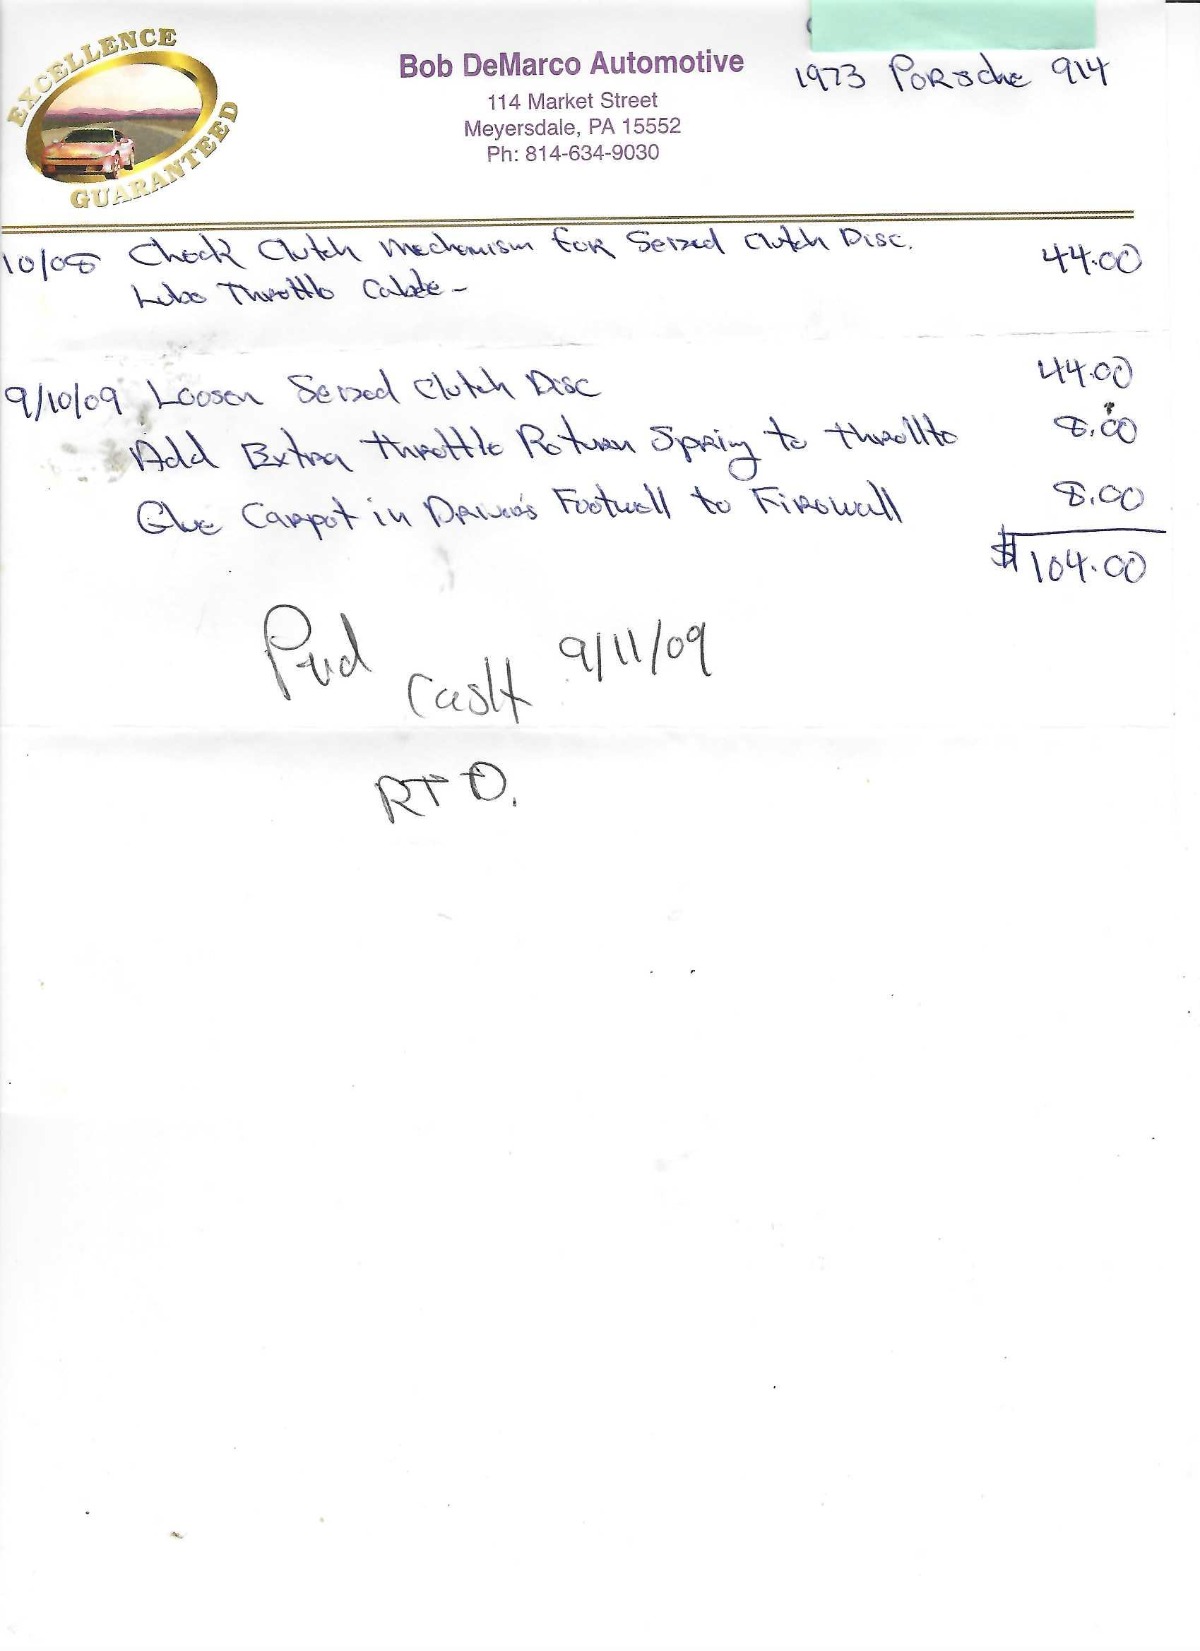 EXCELLENCE
GUARANTEED
Bob DeMarco Automotive
114 Market Street
Meyersdale, PA 15552
Ph: 814-634-9030
1973 Porsche 914
10/08 Check Clutch Mechanism for Seized Clutch Disc. 44.00
Lube Throttle Cable -
9/10/09 Loosen Seized Clutch Disc 44.00
Add Extra throttle Return Spring to throttle 8.00
Glue Carpet in Driver's Footwell to Firewall 8.00
$104.00
Paid
Cash 9/11/09
RTO.